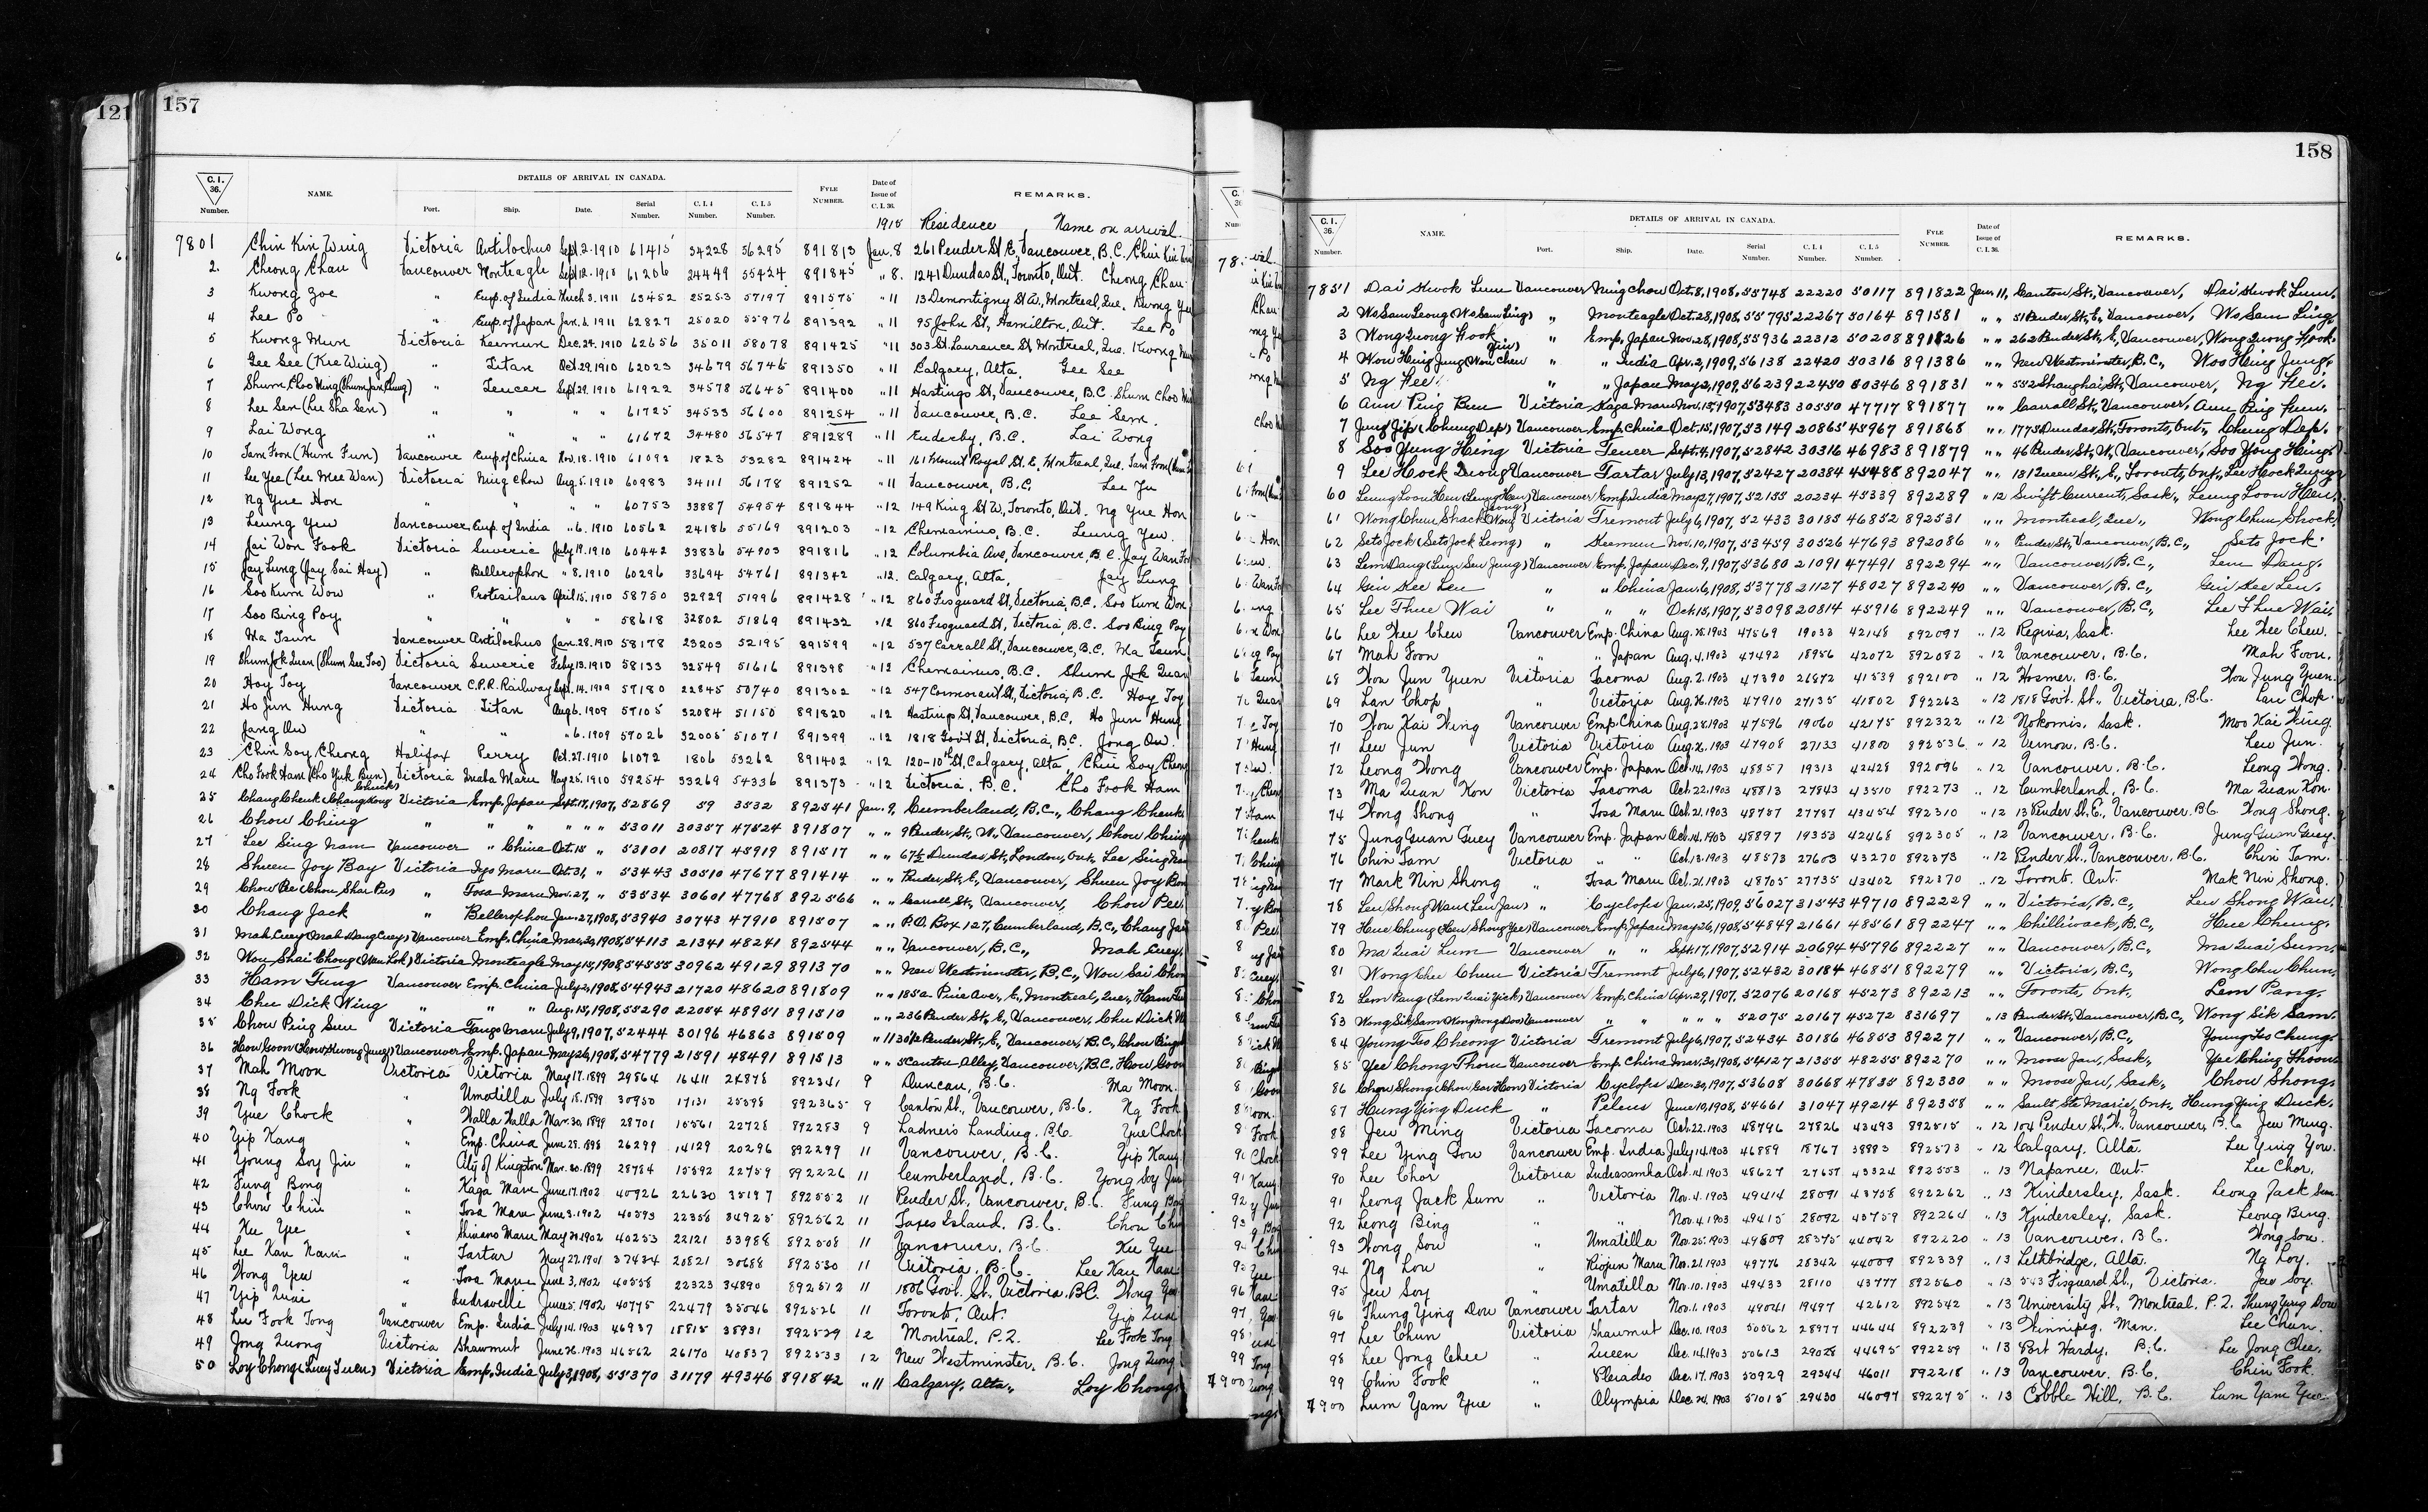 121
157
C.I. 36. Number. NAME. DETAILS OF ARRIVAL IN CANADA. Port. Ship. Date. Serial Number. C.I.4 Number. C.I.5 Number. FYLE NUMBER. Date of Issue of C.I.36. REMARKS.
1918 Residence Name on arrival
7801 Chin Kin Wing Victoria Antilochus Sept. 2. 1910 61415 34228 56295 891813 Jan. 8 261 Pender St E, Vancouver, B.C. Chin Kin
2. Cheong Chau Vancouver Monteagle Sept. 12. 1910 61206 24449 55424 891845 " 8. 1241 Dundas St., Toronto, Ont. Cheong Chau
3 Kwong Zoe " Emp. of India March 3. 1911 63452 25253 57197 891575 " 11 13 Demontigny St W., Montreal, Que. Kwong
4 Lee Po " Emp. of Japan Jan. 6. 1911 62827 25020 55976 891392 " 11 95 John St, Hamilton, Ont. Lee Po
5 Kwong Mun Victoria Keemun Dec. 24. 1910 62656 35011 58078 891425 " 11 303 St. Laurence St, Montreal, Que. Kwong
6 Gee See (Kee Wing) " Titan Oct. 29. 1910 62023 34679 56746 891350 " 11 Calgary, Alta. Gee See
7 Shum Choo " Teucer Sept. 29. 1910 61922 34578 56645 891400 " 11 Hastings St, Vancouver, B.C. Shum Choo
8 Lee Sem (Lee Sha Sen) " " " " 61725 34533 56600 891254 " 11 Vancouver, B.C. Lee Sem.
9 Lai Wong " " " " 61672 34480 56547 891289 " 11 Enderby, B.C. Lai Wong
10 Tam Foon (Hum Fun) Vancouver Emp. of China Nov. 18. 1910 61092 1823 53282 891424 " 11 161 Mount Royal St. E, Montreal, Que.
11 Lee Yee (Lee Mee Wan) Victoria Ning Chow Aug. 5. 1910 60983 34111 56178 891252 " 11 Vancouver, B.C. Lee Yu
12 Ng Yue Hon " " " " 60753 33887 54954 891844 " 12 149 King St W, Toronto, Ont. Ng Yue Hon
13 Leung Yew Vancouver Emp. of India " 6. 1910 60562 24186 55169 891203 " 12 Chemainus, B.C. Leung Yew.
14 Jai Won Fook Victoria Suveric July 19. 1910 60442 33836 54903 891816 " 12 Columbia Ave, Vancouver, B.C. Jay Wan
15 Jay Lung (Jay Sai Hay) " Bellerophon " 8. 1910 60296 33694 54761 891342 " 12. Calgary, Alta. Jay Lung
16 Soo Kum Wow " Protesilaus April 15. 1910 58750 32929 51996 891428 " 12 860 Fisguard St, Victoria, B.C. Soo Kum Won
17 Soo Bing Poy " " " " 58618 32802 51869 891432 " 12 860 Fisguard St, Victoria, B.C. Soo Bing Poy
18 Ma Tsun Vancouver Antilochus Jan. 28. 1910 58178 23203 52195 891599 " 12 537 Carrall St., Vancouver, B.C. Ma Tsun
19 Shum Jok Quan (Shum See Too) Victoria Suveric Feby 13. 1910 58133 32549 51616 891398 " 12 Chemainus, B.C. Shum Jok Quan
20 Hoy Toy Vancouver C.P.R. Railway Sept. 14. 1909 57180 22845 50740 891302 " 12 547 Cormorant St, Victoria, B.C. Hoy Toy
21 Ho Jun Hung Victoria Titan Aug 6. 1909 57105 32084 51150 891820 " 12 Hastings St, Vancouver, B.C. Ho Jun Hung
22 Jang Ow " " " 6. 1909 57026 32005 51071 891399 " 12 1818 Govt St, Victoria, B.C. Jong Ow.
23 Chin Soy Cheong Halifax Perry Oct. 27. 1910 61072 1806 53262 891402 " 12 120-10th St, Calgary, Alta Chin Soy Cheong
24 Cho Fook Ham (Cho Yuk Bun) Victoria Inaba Maru May 25. 1910 59254 33269 54336 891373 " 12 Victoria, B.C. Cho Fook Ham
25 Chang Chenk Victoria Emp. Japan Sept. 17, 1907, 52869 59 3532 892541 Jan. 9, Cumberland, B.C., Chang Chenk
26 Chow Ching " " " " " " 53011 30357 47524 891807 " " 9 Pender St., W., Vancouver, Chow Ching
27 Lee Sing Nam Vancouver " China Oct. 15 " 53101 20817 45919 891517 " " 67½ Dundas St, London, Ont. Lee Sing
28 Shuen Joy Bay Victoria Iyo Maru Oct. 31, " 53443 30510 47677 891414 " " Pender St., E., Vancouver, Shuen Joy
29 Chow Bee (Chow Shai Pee) " Tosa Maru Nov. 27, " 53534 30601 47768 892566 " " Carrall St., Vancouver, Chow Bee
30 Chang Jack " Bellerophon Jan. 27, 1908, 53940 30743 47910 891507 " " P.O. Box 127, Cumberland, B.C., Chang
31 Mah Cuey Vancouver Emp. China Mar. 30, 1908, 54113 21341 48241 892544 " " Vancouver, B.C., Mah Cuey
32 Wou Shai Chong (Wan Lok) Victoria Monteagle May 15, 1908 54555 30962 49129 891370 " " New Westminster, B.C., Wou Sai
33 Ham Tung Vancouver Emp. China July 2, 1908, 54943 21720 48620 891809 " " 185a Pine Ave., E., Montreal, Que., Ham
34 Chu Dick Wing " " " Aug. 15, 1908, 55290 22054 48951 891510 " " 236 Pender St., E., Vancouver, Chu Dick
35 Chow Ping Sun Victoria Tango Maru July 9, 1907, 52444 30196 46863 891509 " 11 Pender St., E., Vancouver, B.C.,
36 How Goon Vancouver Emp. Japan May 26, 1908, 54779 21591 48491 891513 " " 5 Canton Alley, Vancouver, B.C. How Goon
37 Mah Moon Victoria Victoria May 17. 1899 29864 16411 24878 892341 9 Duncan, B.C. Ma Moon.
38 Ng Fook " Umatilla July 18. 1899 30950 17131 25598 892365 9 Canton St., Vancouver, B.C. Ng Fook
39 Yue Chock " Walla Walla Mar. 30. 1899 28701 15561 22728 892283 9 Ladner's Landing, B.C. Yue Chock
40 Yip Kang " Emp. China June 28. 1898 26299 14129 20296 892299 11 Vancouver, B.C. Yip Kang
41 Young Soy Jin " City of Kingston Mar. 30. 1899 28784 15592 22759 892226 11 Cumberland, B.C. Yong Soy
42 Fung Bong " Kaga Maru June 17. 1902 40926 22630 35197 892552 11 Pender St., Vancouver, B.C. Fung
43 Chow Chin " Tosa Maru June 3. 1902 40593 22358 34925 892562 11 Jares Island, B.C. Chou
44 Ku Yue " Shinano Maru May 20. 1902 40253 22121 33988 892508 11 Vancouver, B.C. Ku Yue
45 Lee Kau Nam " Tartar May 27. 1901 37434 20821 30688 892530 11 Victoria, B.C. Lee Kau Nam
46 Wong Yew " Tosa Maru June 3, 1902 40558 22323 34890 892572 11 1806 Govt. St., Victoria, B.C. Wong
47 Yip Quai " Indravelli June 5. 1902 40775 22479 35046 892526 11 Toronto, Ont. Yip Quai
48 Lee Fook Tong Vancouver Emp. India July 14. 1903 46937 18815 38931 892529 12 Montreal, P.Q. Lee Fook Tong
49 Jong Quong Victoria Shawmut June 26. 1903 46562 26170 40837 892533 12 New Westminster, B.C. Jong Quong
50 Loy Chong (Luey Tuen) Victoria Emp. India July 31, 1908, 55370 31179 49346 891842 " 11 Calgary, Alta., Loy Chong
158
C.I. 36. Number. NAME. DETAILS OF ARRIVAL IN CANADA. Port. Ship. Date. Serial Number. C.I.4 Number. C.I.5 Number. FYLE NUMBER. Date of Issue of C.I.36. REMARKS.
7851 Dai Kwok Lum Vancouver Ning Chow Oct. 8, 1908, 55748 22220 50117 891822 Jan. 11, Canton St., Vancouver, Dai Kwok Lum.
2 Wo Sam Leong (Wo Sam Ling) " Monteagle Oct. 28, 1908, 55795 22267 50164 891581 " " 51 Pender St., E., Vancouver, Wo Sam Ling.
3 Wong Quong Hook " Emp. Japan Nov. 28, 1908, 55936 22312 50208 891826 " " 262 Pender St., E., Vancouver, Wong Quong Hook.
4 Wou Hing Jung " " India Apr. 2, 1909, 56138 22420 50316 891386 " " New Westminster, B.C., Woo Hing Jung.
5 Ng Kee " " Japan May 2, 1909, 56239 22450 50346 891831 " " 552 Shanghai St., Vancouver, Ng Kee.
6 Ann Ping Bun Victoria Kaga Maru Nov. 15, 1907, 53483 30550 47717 891877 " " Carrall St., Vancouver,
7 Jung Jip (Chung Dep) Vancouver Emp. China Oct. 15, 1907, 53149 20865 45967 891868 " " 1773 Dundas St., Toronto, Ont., Chung Dep.
8 Soo Yung Hing Victoria Teucer Sept. 4, 1907, 52842 30316 46983 891879 " " 46 Pender St., W., Vancouver, Soo Yong Hing.
9 Lee Hock Quong Vancouver Tartar July 13, 1907, 52427 20384 45488 892047 " " 181 Queen St., E., Toronto, Ont., Lee Hock Quong
60 Leung Loon Hen Vancouver Emp. India May 27, 1907, 52155 20234 45339 892289 " 12 Swift Current, Sask., Leung Loon Hen.
61 Wong Chun Shack Victoria Tremont July 6, 1907, 52433 30185 46852 892531 " " Montreal, Que., Wong Chun Shock
62 Seto Jock (Seto Jock Leong) " Keemun Nov. 10, 1907, 53459 30526 47693 892086 " " Pender St., Vancouver, B.C., Seto Jock.
63 Lem Dang (Lum Sen Jung) Vancouver Emp. Japan Dec. 9, 1907, 53680 21091 47491 892294 " " Vancouver, B.C., Lem Dang.
64 Gin Kee Len " " China Jan. 6, 1908, 53778 21127 48027 892240 " " Vancouver, B.C., Gin Kee Len.
65 Lee Thue Wai " " " Oct. 15, 1907, 53098 20814 45916 892249 " " Vancouver, B.C., Lee Thue Wai.
66 Lee Hee Chew Vancouver Emp. China Aug. 25. 1903 47569 19033 42148 892097 " 12 Regina, Sask. Lee Hee Chew.
67 Mah Foon " " Japan Aug. 4. 1903 47492 18956 42072 892082 " 12 Vancouver, B.C. Mah Foon.
68 Wou Jun Yuen Victoria Tacoma Aug. 2. 1903 47390 26872 41539 892100 " 12 Hosmer, B.C. Wou Jung Yuen.
69 Lan Chop " Victoria Aug. 26. 1903 47910 27135 41802 892263 " 12 1818 Govt. St., Victoria, B.C. Lau Chok.
70 Wou Kai Wing Vancouver Emp. China Aug. 28. 1903 47596 19060 42175 892322 " 12 Nokomis, Sask. Moo Kai Wing.
71 Lew Jun Victoria Victoria Aug. 26. 1903 47908 27133 41800 892536 " 12 Vernon, B.C. Lew Jun.
72 Leong Wong Vancouver Emp. Japan Oct. 14. 1903 48857 19313 42428 892096 " 12 Vancouver, B.C. Leong Wong.
73 Ma Quan Kon Victoria Tacoma Oct. 22. 1903 48813 27843 43510 892273 " 12 Cumberland, B.C. Ma Quan Kon.
74 Wong Shong " Tosa Maru Oct. 21. 1903 48757 27787 43454 892310 " 12 13 Pender St. E., Vancouver, B.C. Wong Shong.
75 Jung Guan Guey Vancouver Emp. Japan Oct. 14. 1903 48897 19353 42468 892305 " 12 Vancouver, B.C. Jung Guan Guey.
76 Chin Tam Victoria " " Oct. 13. 1903 48573 27603 43270 892373 " 12 Pender St., Vancouver, B.C. Chin Tam.
77 Mark Nin Shong " Tosa Maru Oct. 21. 1903 48705 27735 43402 892370 " 12 Toronto, Ont. Mak Nin Shong.
78 Leu Shong Wan (Leu Jan) " Cyclops Jan. 25, 1909, 56027 31543 49710 892229 " " Victoria, B.C., Leu Shong Wan.
79 Hue Chung Vancouver Emp. Japan May 26, 1908, 54849 21661 48561 892247 " " Chilliwack, B.C., Hue Chung.
80 Ma Quai Lum Vancouver " " Sept. 17, 1907, 52914 20694 45796 892227 " " Vancouver, B.C., Ma Quai Sum.
81 Wong Chee Chun Victoria Tremont July 6, 1907, 52432 30184 46851 892279 " " Victoria, B.C., Wong Chu Chun.
82 Lem Pang (Lem Quai Yick) Vancouver Emp. China Apr. 29, 1907, 52076 20168 45273 892213 " " Toronto, Ont., Lem Pang.
83 Wong Sik Sam Vancouver " " " " " 52075 20167 45272 831697 " 13 Pender St., Vancouver, B.C., Wong Sik Sam.
84 Young Go Cheong Victoria Tremont July 6, 1907, 52434 30186 46853 892271 " " Vancouver, B.C., Young Go Chung.
85 Yee Chong Thom Vancouver Emp. China Mar. 30, 1908, 54127 21355 48255 892270 " " Moose Jaw, Sask., Yee Ching Thoon
86 Chow Shong Victoria Cyclops Dec. 30, 1907, 53608 30668 47835 892330 " " Moose Jaw, Sask., Chow Shong.
87 Hung Ying Duck " Peleus June 10, 1908, 54661 31047 49214 892358 " " Sault Ste Marie, Ont., Hung Ying Duck.
88 Jew Ming Victoria Tacoma Oct. 22. 1903 48796 27826 43493 892515 " 12 104 Pender St. W. Vancouver, B.C. Jew Ming.
89 Lee Ying Gow Vancouver Emp. India July 14. 1903 46889 18767 38883 892573 " 12 Calgary, Alta. Lee Ying You.
90 Lee Chor Victoria Indrasamha Oct. 14. 1903 48627 27657 43324 892553 " 13 Napanee, Ont. Lee Chor.
91 Leong Jack Sum " Victoria Nov. 4. 1903 49414 28091 43758 892262 " 13 Kindersley, Sask. Leong Jack Sum.
92 Leong Bing " " Nov. 4. 1903 49415 28092 43759 892264 " 13 Kindersley, Sask. Leong Bing.
93 Wong Sow " Umatilla Nov. 25. 1903 49809 28375 44042 892220 " 13 Vancouver, B.C. Wong Sow.
94 Ng Lou " Riojun Maru Nov. 21. 1903 49776 28342 44009 892339 " 13 Lethbridge, Alta. Ng Loy.
95 Jew Soy " Umatilla Nov. 10. 1903 49433 28110 43777 892560 " 13 543 Fisguard St., Victoria. Jew Soy.
96 Thung Ying Dow Vancouver Tartar Nov. 1. 1903 49041 19497 42612 892542 " 13 University St., Montreal, P.Q. Thung Ying Dow
97 Lee Chun Victoria Shawmut Dec. 10. 1903 50562 28977 44644 892239 " 13 Winnipeg, Man. Lee Chun.
98 Lee Jong Chee " Queen Dec. 14. 1903 50613 29028 44695 892259 " 13 Port Hardy, B.C. Lee Jong Chee.
99 Chin Fook " Pleiades Dec. 17. 1903 50929 29344 46011 892218 " 13 Vancouver, B.C. Chin Fook.
7900 Lum Yam Yue " Olympia Dec. 24. 1903 51015 29430 46097 892275 " 13 Cobble Hill, B.C. Lum Yam Yue.